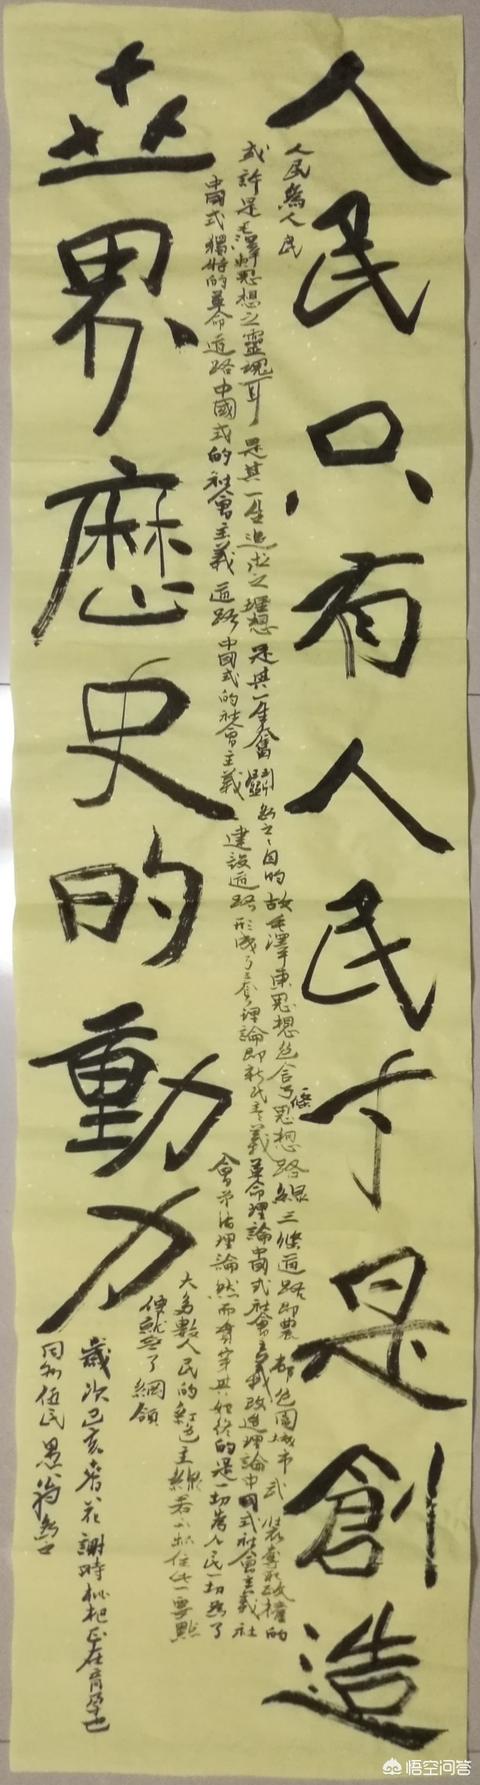 人民只有人民才是創造
世界歷史的動力
人民為人民
或許是毛澤東思想之靈魂耳 是其一生追求之理想 是其一生奮鬪之目的 故毛澤東思想包含了 思想路線三條道路即農 都包圍城市 武裝奪取政權的
中國式獨特的革命道路 中國式的社會主義道路 中國式的社會主義建設道路 形成了三套理論即新民主主義革命理論 中國式社會主義改造理論 中國式社會主義社
會 理論 然而貫穿其始終的是一切為人民一切為了
大多數人民的紅色主線 若不抓住此一要點
便就 了綱領
歲次己亥春花謝時枇杷正在育孕也
同 伍民愚翁
悟空问答